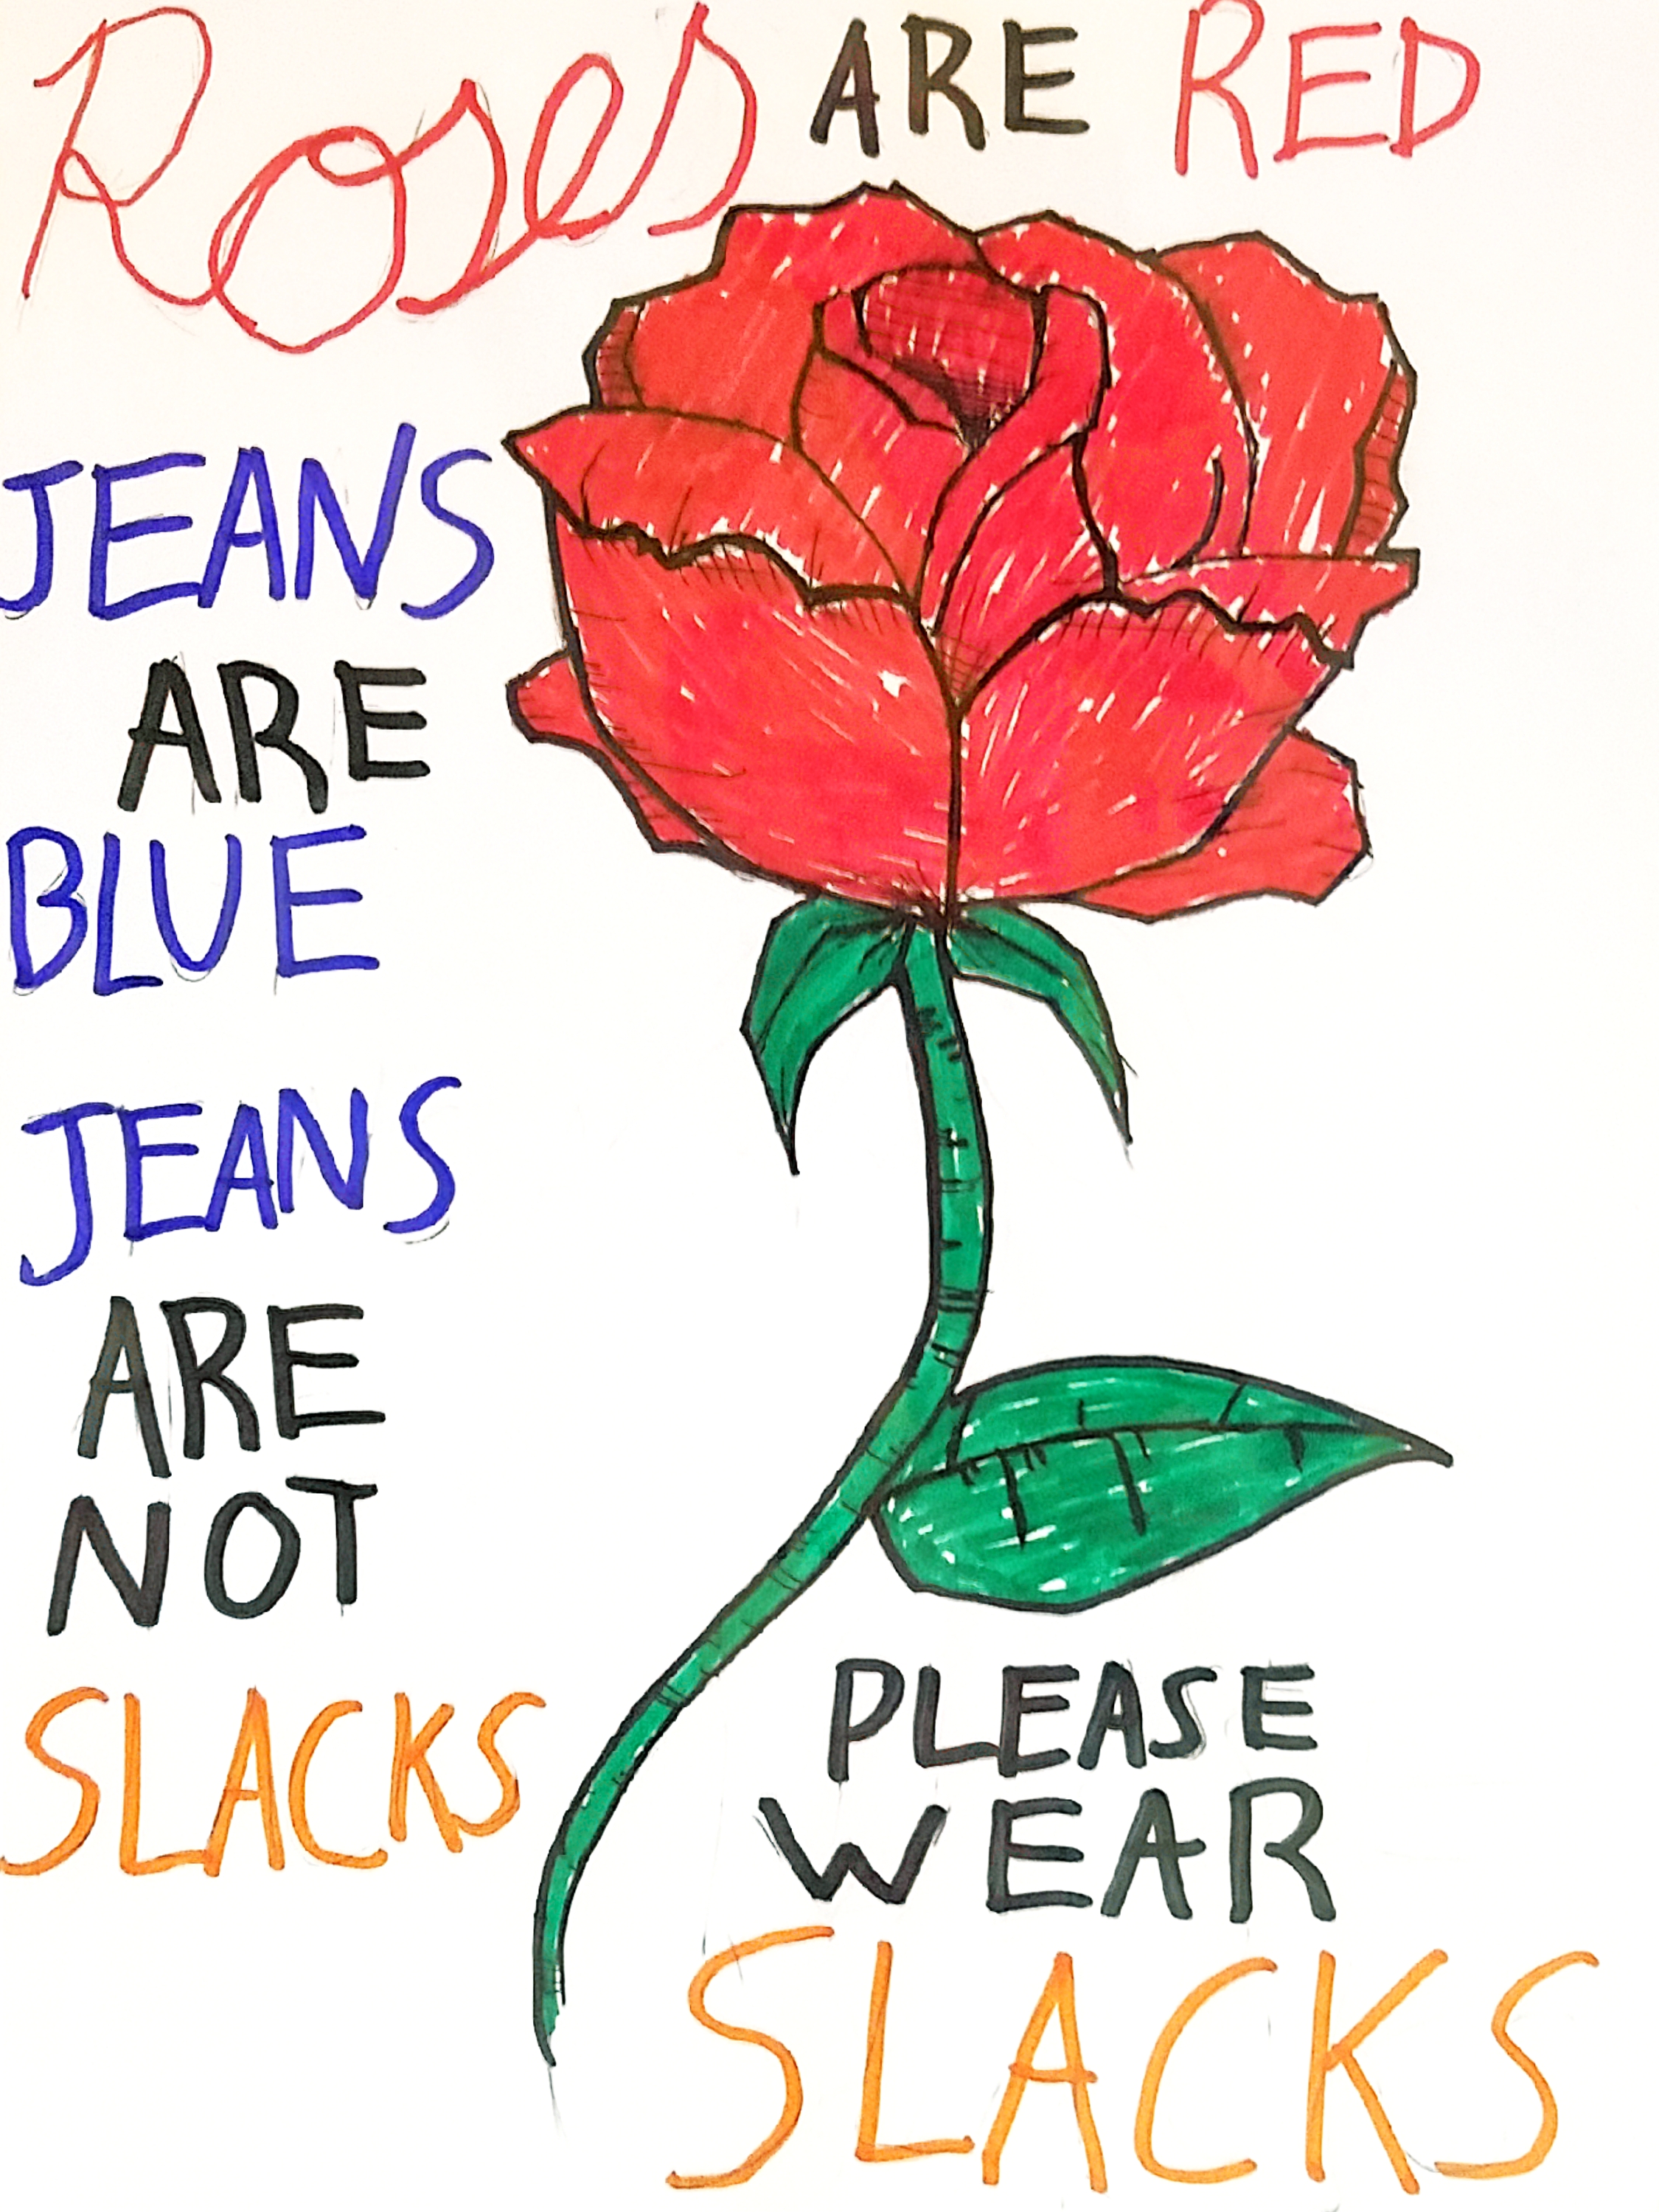 Roses ARE RED
JEANS
ARE
BLUE
JEANS
ARE
NOT
SLACKS
PLEASE
WEAR
SLACKS